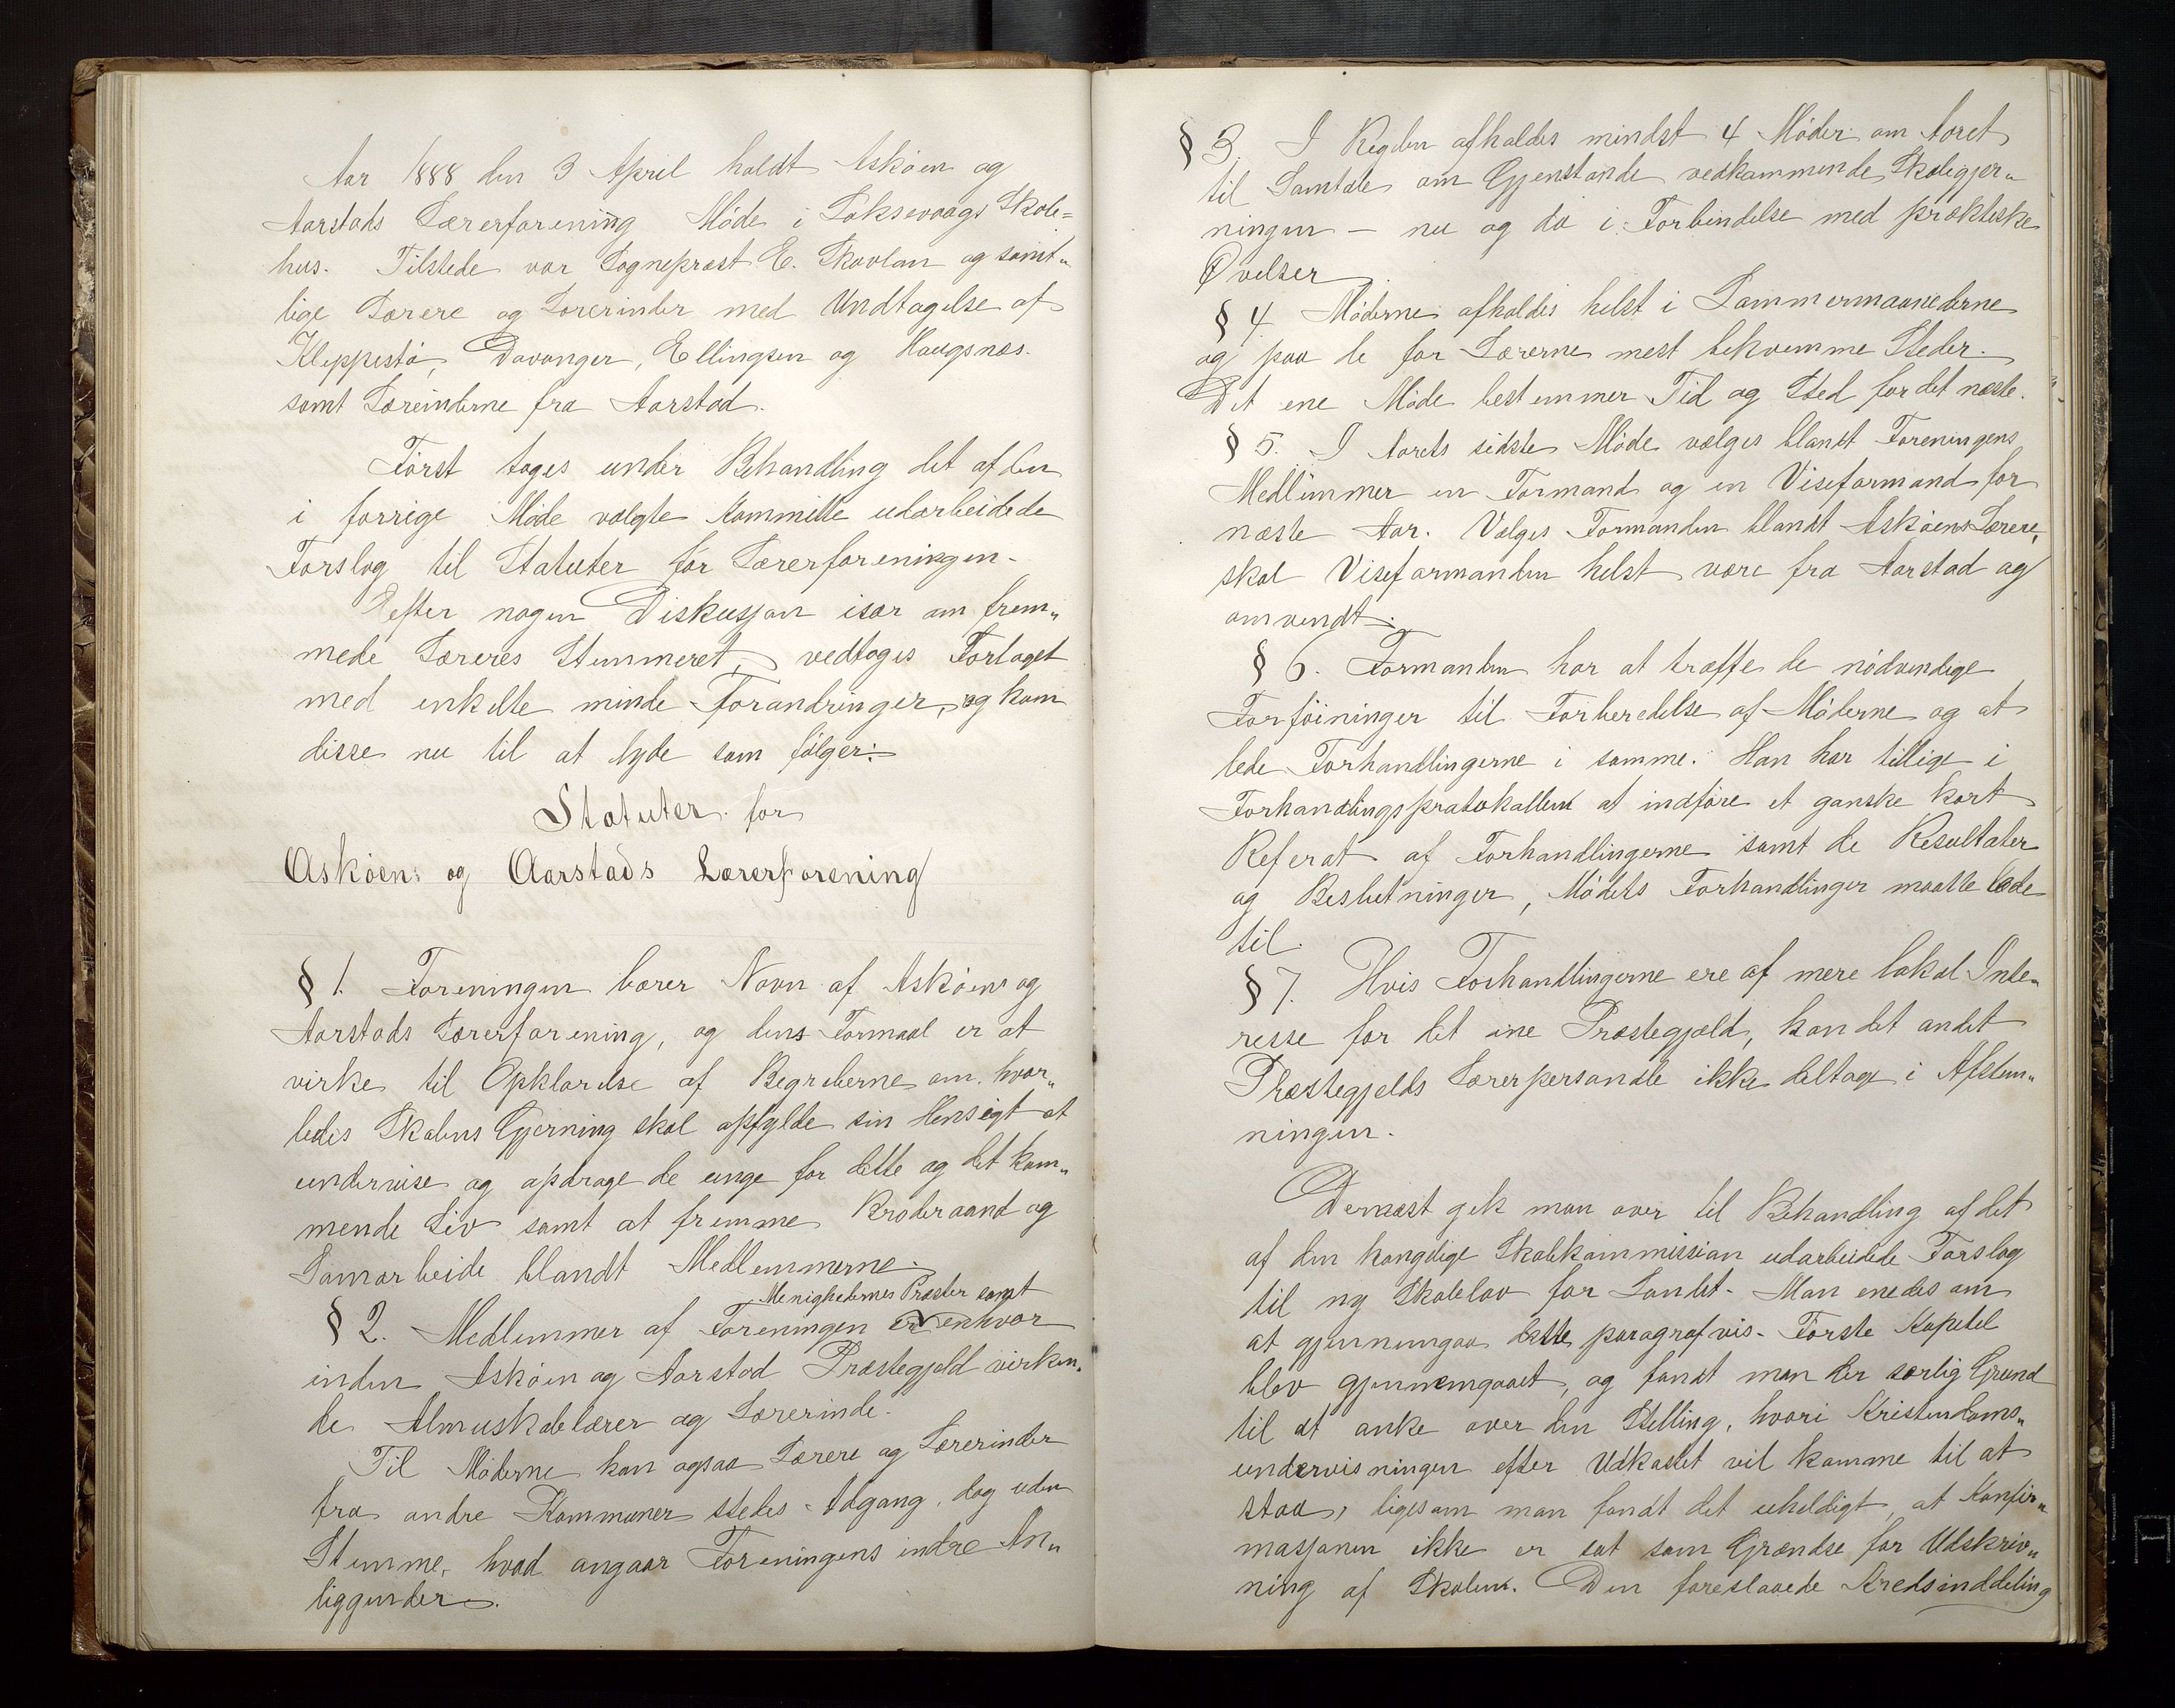 Aar 1888 den 3 April holdt Askøen og
Aarstads Lærerforening Møde i Laksevaags Skole=
hus. Tilstede var Sogneprest E. Skavlan og samt„
lige Lærere og Lærerinder med Undtagelse af
Kleppestø, Davanger, Ellingsen og Haugsnæs.
samt Læreinderne fra Aarstad.
Først toges under Behandling det af den
i forrige Møde valgte Kommitte udarbeidede
Forslag til Statuter før Lærerforeningen.
Eefter nogen Diskusjon især om frem„
mede Læreres Stemmeret, vedtoges Forlaget
med enkelte minde Forandringer, og kom
disse nu til at lyde som følger:
Statuter for
Askøens og Aarstads Lærerforening
§ 1. Foreningen bærer Navn af Askøens og
Aarstads Lærerforening, og dens Formaal er at
virke til Opklarelse af Begreberne om, hvor„
ledes Skolens Gjerning skal opfylde sin Hensigt at
undervise og opdrage de unge for dette og det kom„
mende Liv samt at fremme Broderaand og
Samarbeide blandt Medlemmerne.
Menighedernes Præster samt
§ 2. Medlemmer af Foreningen er enhver
inden Askøen og Aarstad Præstegjeld virken„
de Almuskolelærer og Lærerinde.
Til Møderne kan ogsaa Lærere og Lærerinder
fra andre Kommuner stedes Adgang, dog uden
Stemme, hvad angaar Foreningens indre An„
liggender.
§ 3. I Regelen afholdes mindst 4 Møder om Aaret
til Samtale om Gjenstande vedkommende Skolegjer„
ningen – nu og da i Forbindelse med praktiske
Øvelser.
§ 4 Møderne afholdes helst i Sommermaanederne
og paa de for Lærerne mest bekvemme Steder.
Det ene Møde bestemmer Tid og Sted for det næste.
§ 5. I Aarets sidste Møde vælges blandt Foreningens
Medlemmer en Formand og en Viseformand for
næste Aar. Vælges Formanden blandt Askøens Lærere,
skal Viseformanden helst være fra Aarstad og
omvendt.
§ 6. Formanden har at træffe de nødvendige
Forføininger til Forberedelse af Møderne og at
lede Forhandlingerne i samme. Han har tillige i
Forhandlingsprotokollen at indføre et ganske kort
Referat af Forhandlingerne samt de Resultater
og Beslutninger, Mødets Forhandlinger maatte lede
til.
§ 7. Hvis Forhandlingerne ere af mere lokal Inte„
resse for det ene Præstegjeld, kan det andet
Præstegjelds Lærerpersonale ikke deltage i Afstem„
ningen.
Dernæst gik man over til Behandling af det
af den kongelige Skolekommission udarbeidede Forslag
til ny Skolelov for Landet. Man enedes om
at gjennemgaa dette paragrafvis. Første Kapitel
blev gjennemgaaet, og fandt man der særlig Grund
til at anke over den Stelling, hvori Kristendoms„
undervisningen efter Udkastet vil komme til at
staa, ligesom man fandt det uheldigt, at Konfir„
masjonen ikke er sat som Grændse for Udskriv„
ning af Skolen. Den foreslaaede Kredsinddeling